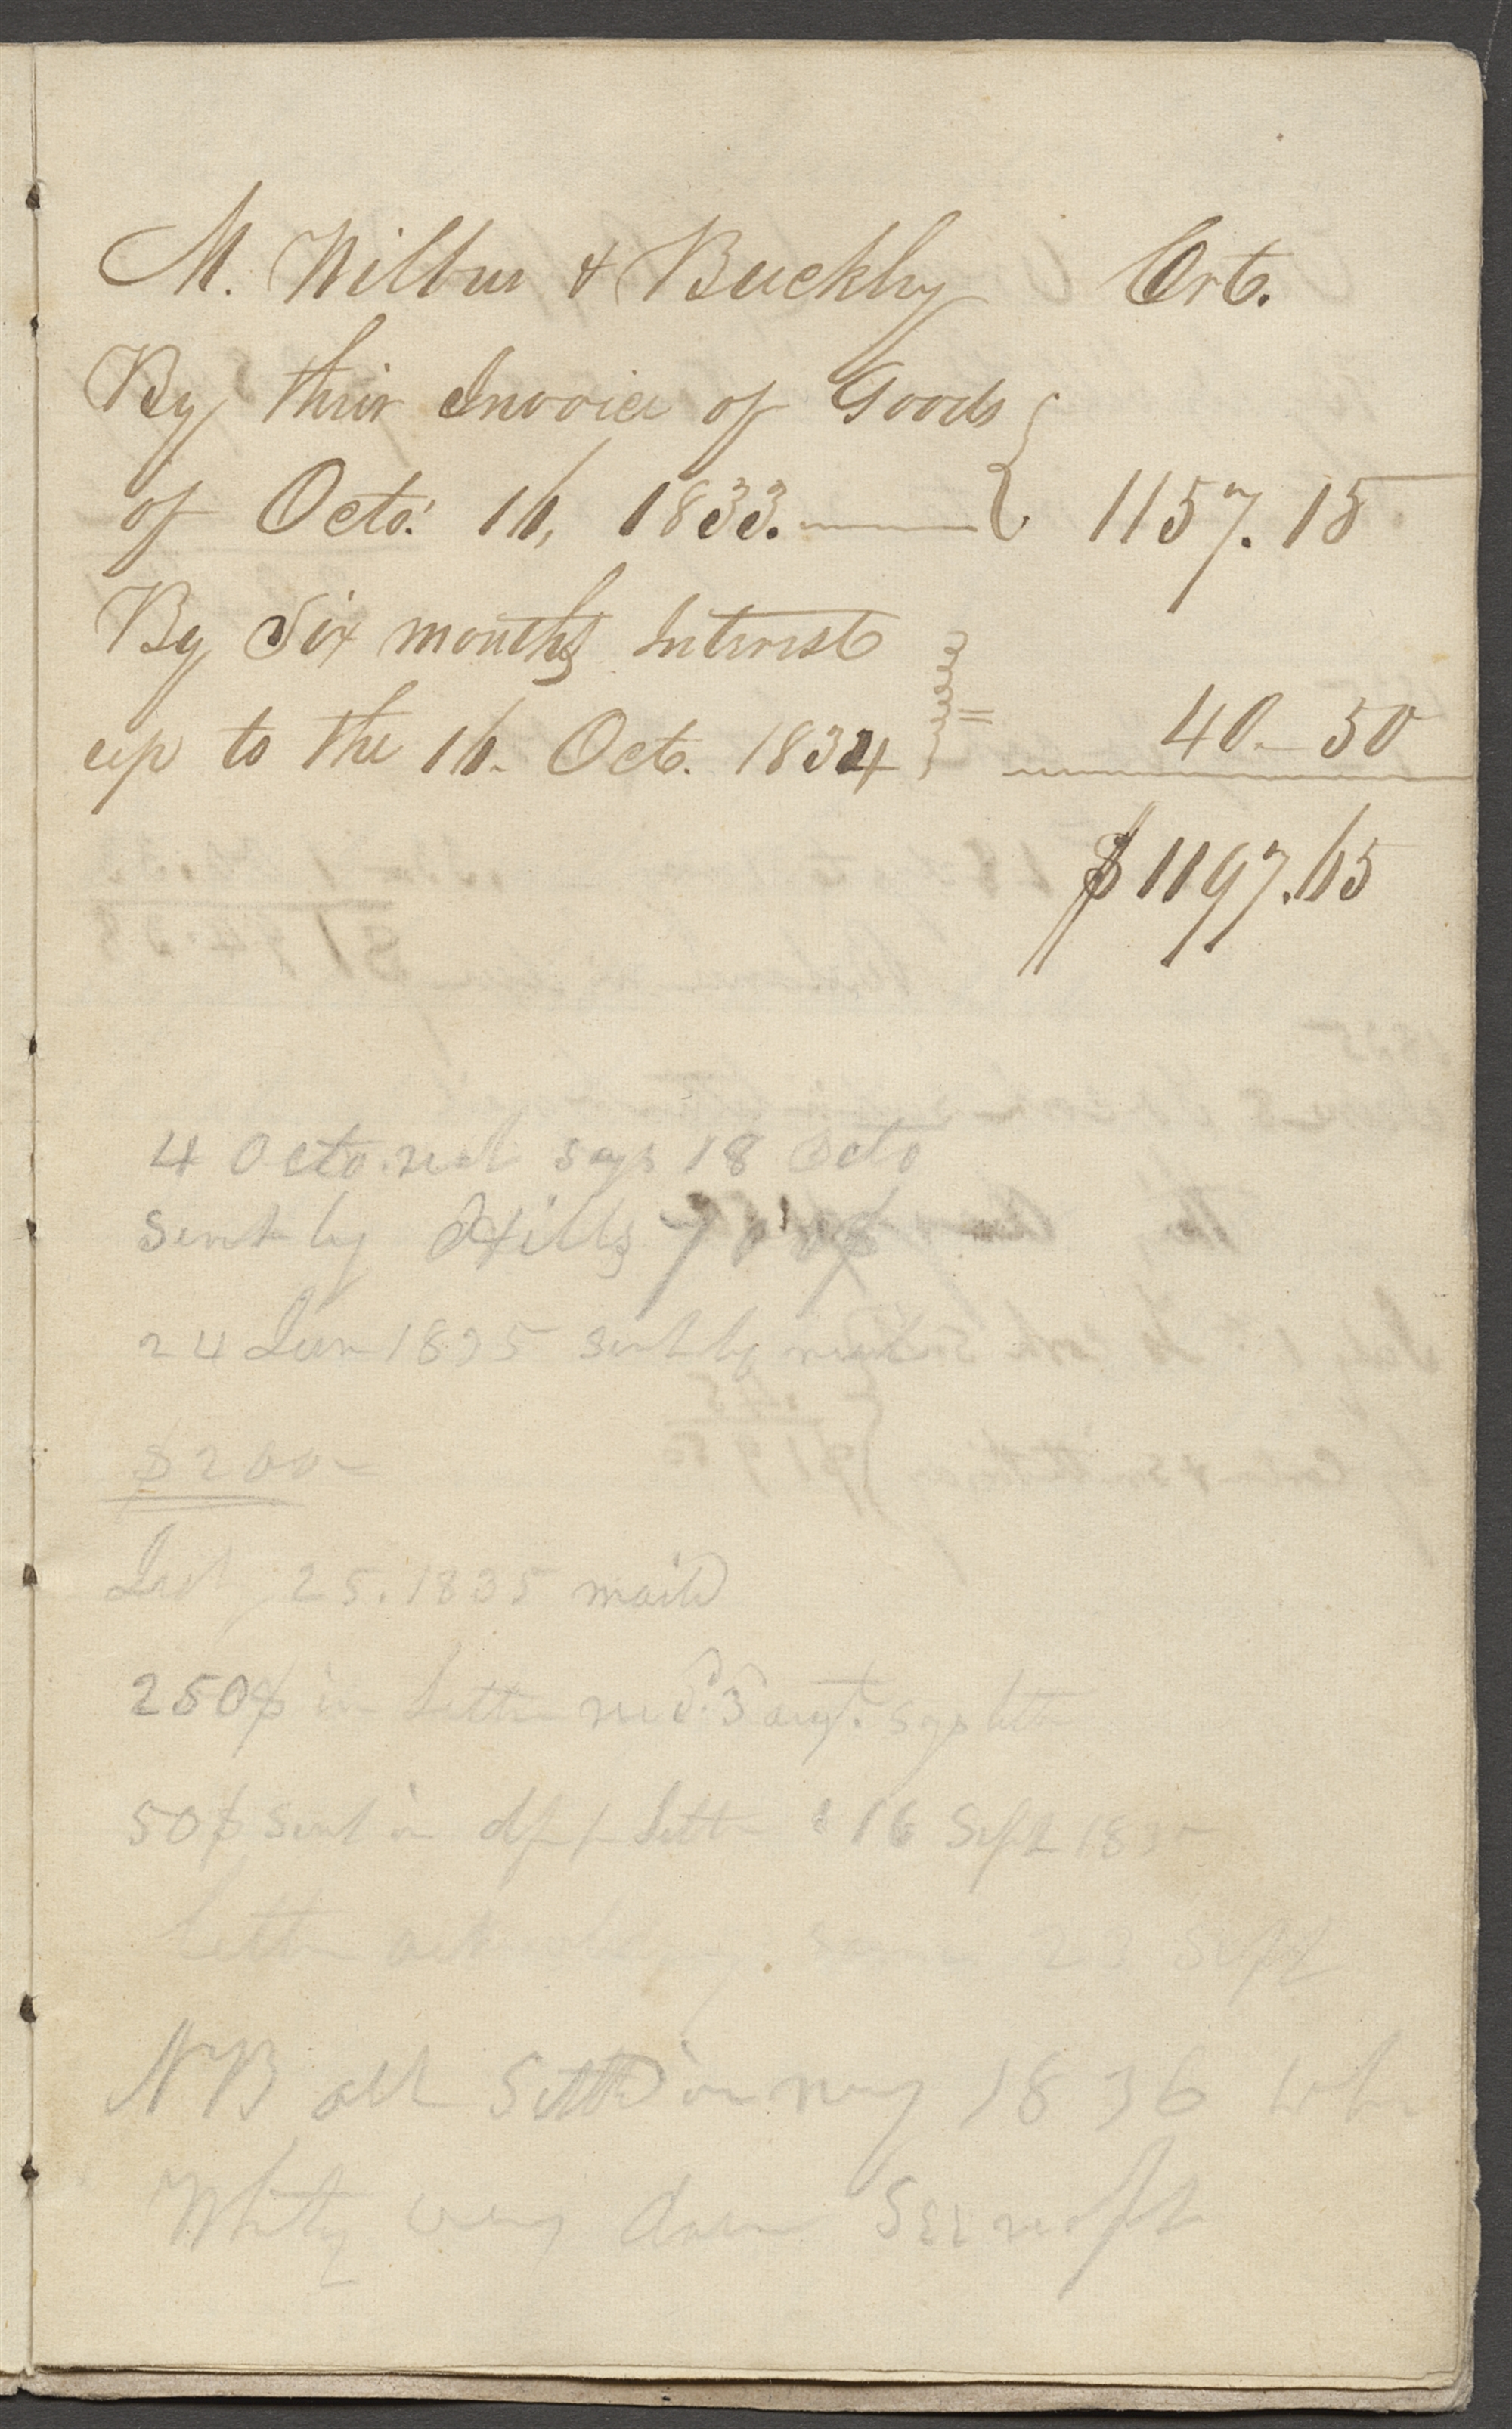 M. Wilbur & Buckley Crt.
By their Invoice of Goods
of Octo. 16, 1833. 1157.15
By Six months Interest
up to the 16. Oct. 1834 = 40.50
$1197.65
4 Octo. recd says 18 Octo
Sent by Hills 700$
24 Jan 1835 sent by mail
$200
25. 1835 maild
250$ in Letter recd. 3 augt. says letter
50$ Sent in Letter 16 Sept 183
Letter acknowledging same 23 Sept
NB all Settld in may 1836 when
Whity was down See receipt